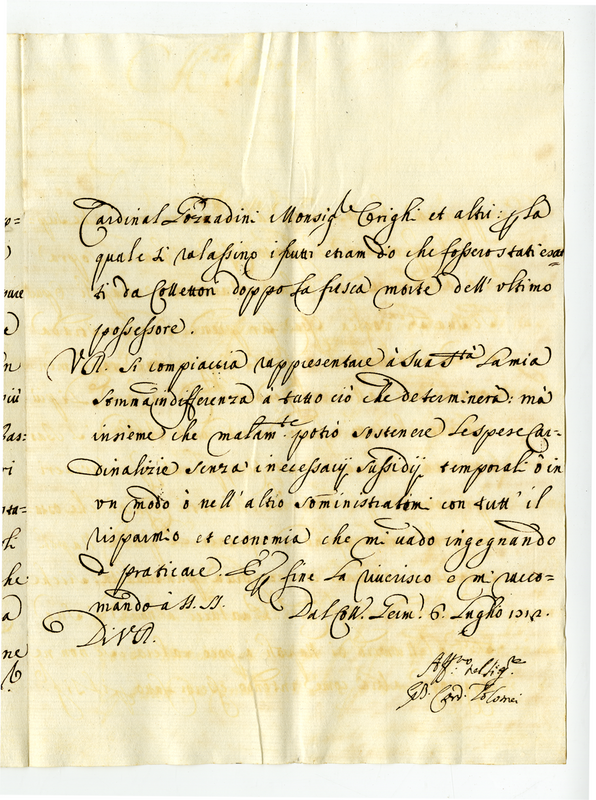 Cardinal Gozzadini Monsig.re Cerighi et altri: la
quale si rilassino i frutti etiam dio che fossero stati esat=
ti da Collettori doppo la morte dell' ultimo
possessore.
VR. si compiaccia rappresentare à Sua S.tà la mia
somma indifferenza a tutto ciò che determinerà: mà
insieme che malam.te potrò sostenere le spese Car=
dinalizie senza i necessarij sussidij temporali ò in
un modo ò nell' altro somministratomi con tutt' il
risparmio et economia che mi vado ingegnando
praticare. fine la riverisco e mi racco=
mando à SS. SS. Dal Coll. Germ. 6. Luglio 1712.
Di VR.
Aff.mo nel Sig.re
Card. Tolomei